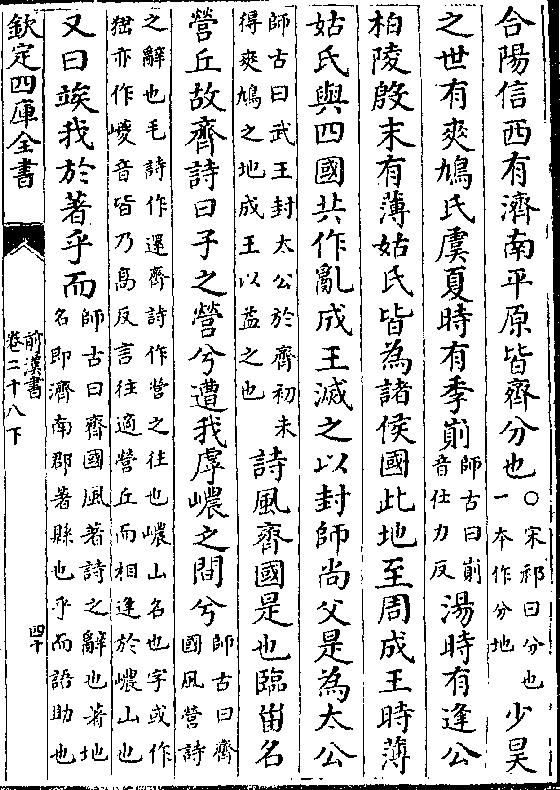 合陽信西有濟南平原皆齊分也
○宋祁曰分也
一本作分地
少昊
之世有爽鳩氏虞夏時有季崱
師古曰崱
音仕力反
湯時有逢公
柏陵殷末有薄姑氏皆為諸侯國此地至周成王時薄
姑氏與四國共作亂成王滅之以封師尚父是為太公
師古曰武王封太公於齊初未
得爽鳩之地成王以益之也
詩風齊國是也臨甾名
營丘故齊詩曰子之營兮遭我虖嶩之間兮
師古曰齊
國風營詩
之辭也毛詩作還齊詩作營之往也嶩山名也字或作
亦作音皆乃高反言往適營丘而相逢於嶩山也
又曰竢我於著乎而
師古曰齊國風著詩之辭也著地
名即濟南郡著縣也乎而語助也
欽定四庫全書
前漢書
卷二十八下
四十